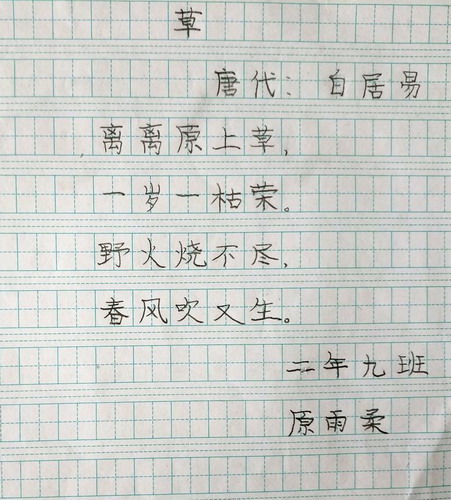 草
唐代：白居易
离离原上草，
一岁一枯荣。
野火烧不尽，
春风吹又生。
二年九班
原雨柔